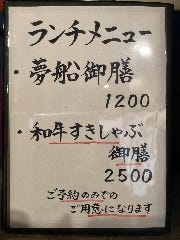 ランチメニュー
・夢船御膳
1200
・和牛すきしゃぶ
御膳
2500
ご予約のみでの
ご用意になります